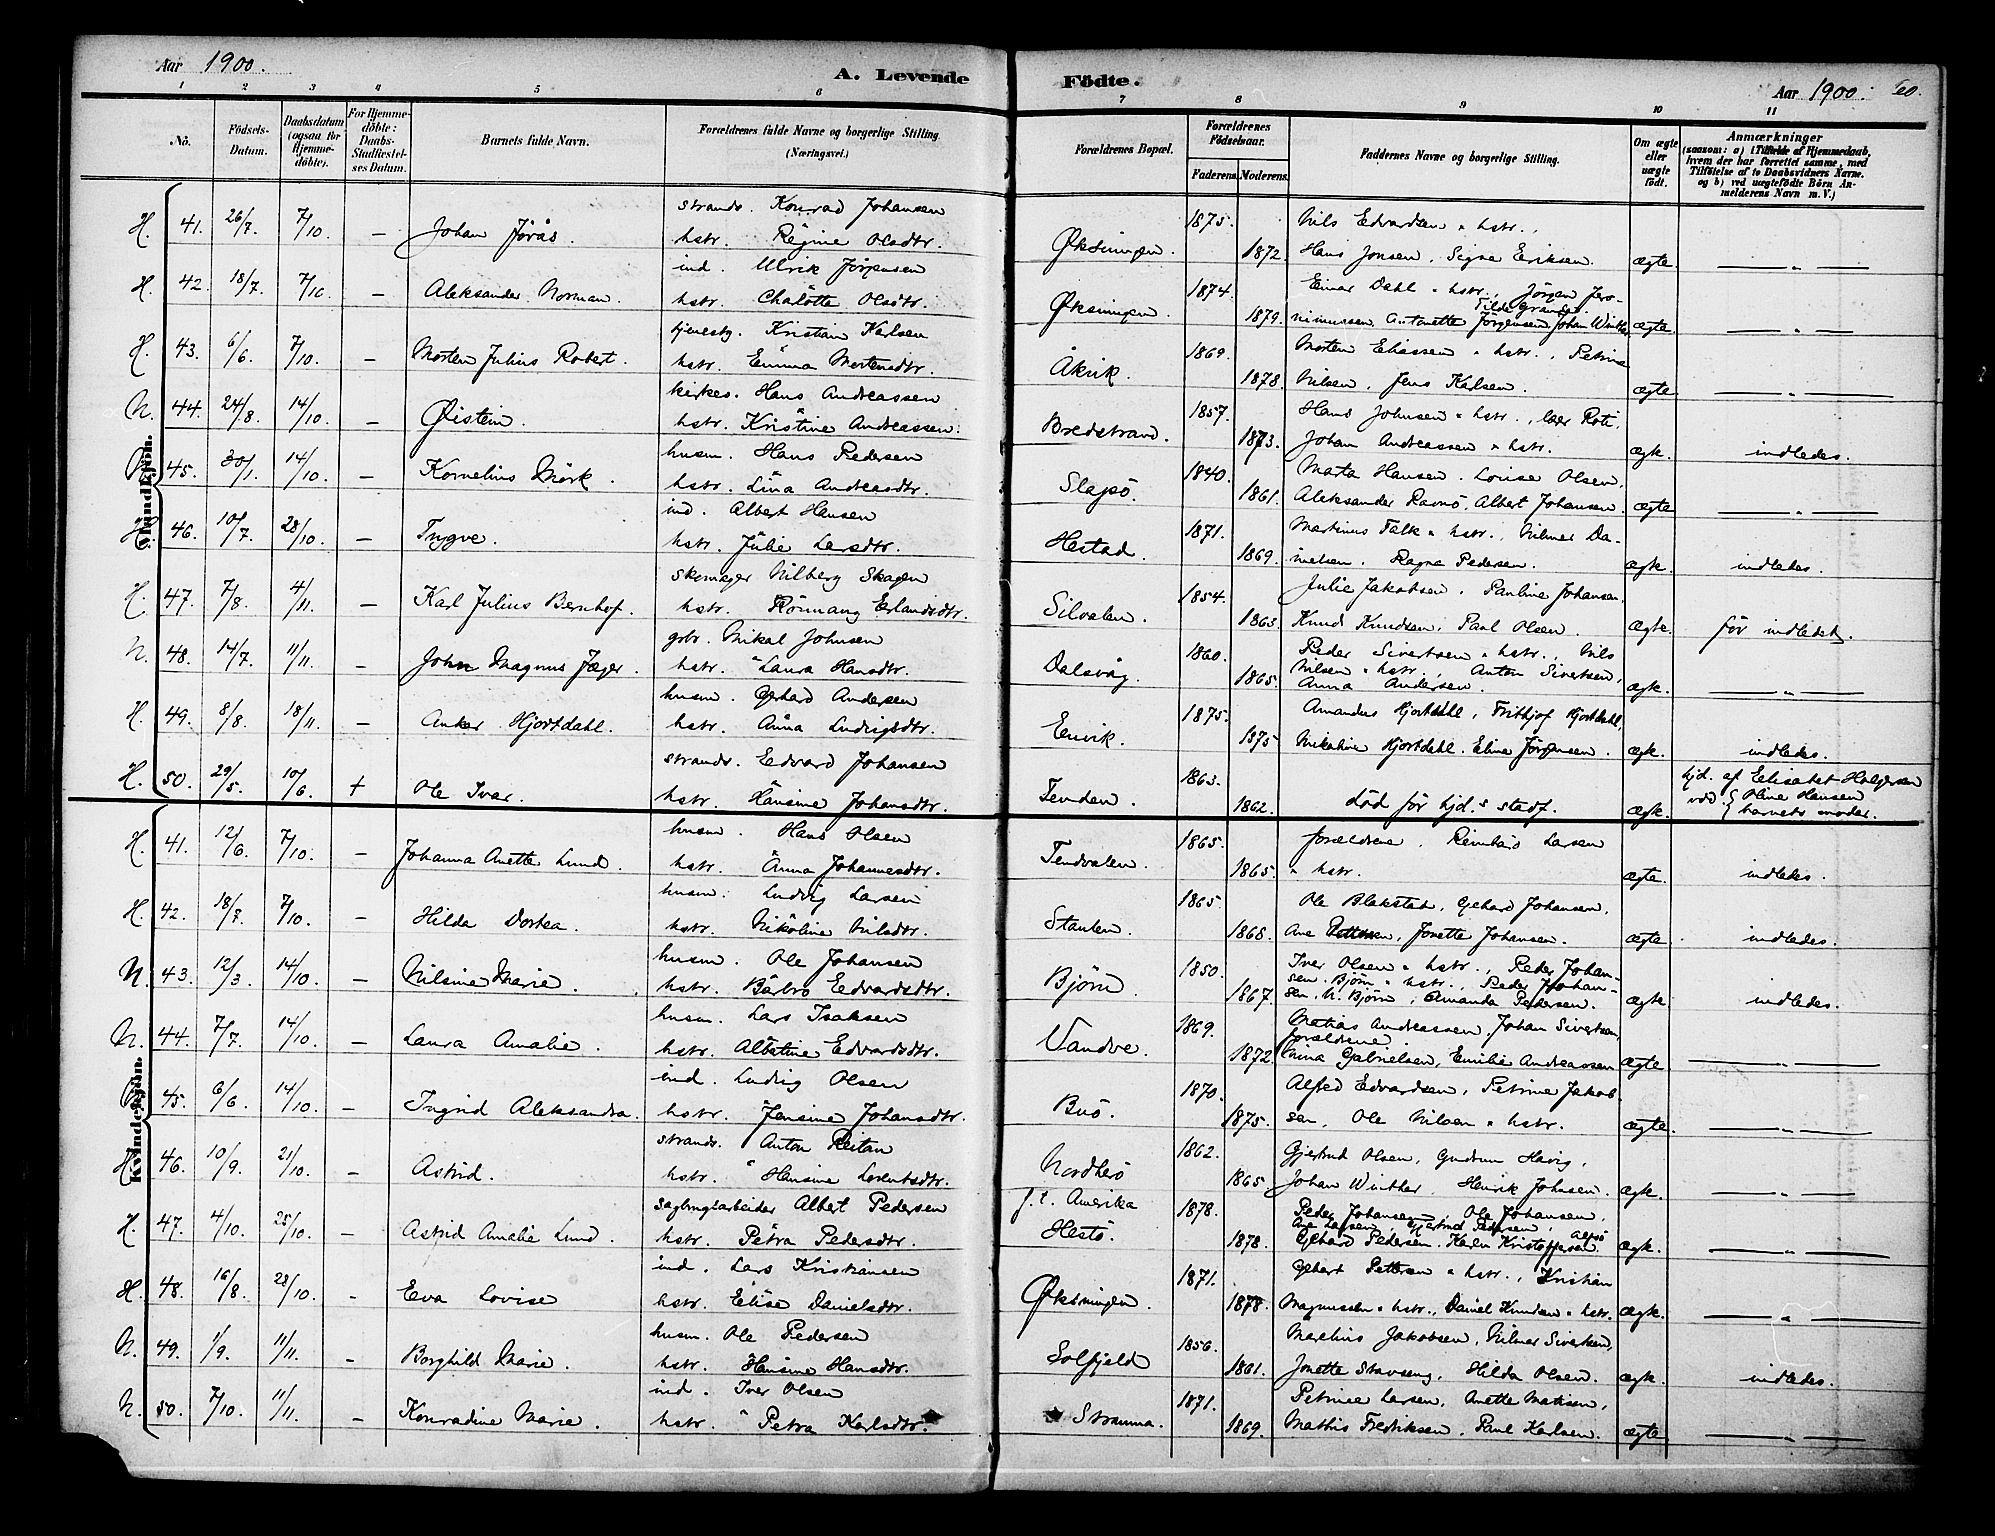 Aar 1900.
A. Levende Födte.
Aar 1900. 60.
1 2 3 4 5 6 7 8 9 10 11
No.
Födsels-Datum.
Daabsdatum (ogsaa for Hjemme-döbte).
For Hjemme-döbte: Daabs-Stadfæstel-ses Datum.
Barnets fulde Navn.
Forældrenes fulde Navne og borgerlige Stilling. (Næringsvei.)
Forældrenes Bopæl.
Forældrenes Födselsaar.
Faderens. Moderens.
Faddernes Navne og borgerlige Stilling.
Om ægte eller uægte födt.
Anmærkninger
(saasom: a) i Tilfælde af Hjemmedaab, hvem der har forrettet samme, med Tilföielse af to Daabsvidners Navne. og b) ved uægtefödte Börn An-melderens Navn m. V.)
Mandkjön.
strands. Konrad Johansen 1875. Nils Edvardsen " hstr.,
H. 41. 26/7. 7/10. — Johan Jöräs. hstr. Regine Olsdtr. Øksningen. 1872. Hans Jonsen, Signe Eriksen. ægte. — " —
ind. Ulrik Jörgensen 1874. Einar Dahl " hstr., Jörgen Jero-
H. 42. 18/7. 7/10 — Aleksander Norman. hstr. Charlotte Olsdtr. Øksningen. 1879. nimussen, Antonette Jörgensen, Johan Winther ægte. — " —
tjenestg. Kristian Karlsen 1869. Morten Eliassen " hstr., Petrine
H. 43. 6/6. 7/10. — Morten Julius Robert. hstr. Emma Mortensdtr. Åkvik. 1878. Nilsen, Jens Karlsen. ægte — " —
kirkes. Hans Andreassen 1857. Hans Johnsen " hstr.,
N. 44. 24/8. 14/10. — Øistein. hstr. Kristine Andreassen. Bredstrand. 1873. Johan Andreassen " hstr. ægt. indledes.
husm. Hans Pedersen 1840. Marta Hansen. Louise Olsen,
N. 45. 30/1. 14/10. — Kornelius Mörk. hstr. Lina Andreasdtr. Slapö. 1861. Aleksander Ramö, Albert Johansen. ægte — " —
ind. Albert Hansen 1871. Martinus Falk " hstr., Hilmer Da-
H. 46. 10/7. 28/10. — Trygve. hstr. Julie Larsdtr. Hestad. 1869. nielsen. Ragna Pedersen. ægt. indledes.
skomager Nilberg Skagen 1854. Julie Jakobsen, Pauline Johansen,
H. 47. 7/8. 4/11. — Karl Julius Bernhof. hstr. Rönnaug Erlandsdtr. Silvalen. 1863. Knud Knudsen, Paul Olsen. ægt. før indledet.
gbr. Mikal Johnsen 1860. Peder Sivertsen " hstr., Nils
N. 48. 14/7. 11/11. — John Magnus Jæger. hstr. Laura Hansdtr. Dalsvåg. 1865. Nilsen " hstr., Anton Sivertsen,
Anna Andersen. ægt. — " —
husm. Gerhard Andersen 1875. Amandus Hjortdahl, Frithjof Hjortdahl,
H. 49. 8/8. 18/11. — Anker Hjortdahl. hstr. Anna Ludvigsdtr. Envik. 1875 Nikoline Hjortdahl. Eline Jörgensen. ægt. indledes.
strands. Edvard Johansen 1863. hjd. af Elisabet Holgersen
H. 50. 29/5. 10/6. + Ole Ivar. hstr. Hansine Johansdtr. Tenden. 1862. död för hjd.s stadf. ægt. vid. { Oline Hansen
barnets moder.
Kvindekjön.
husm. Hans Olsen 1865. forældrene, Reinhard Larsen
H. 41. 12/6. 7/10. — Johanna Anette Lund. hstr. Anna Johannesdtr. Tendvalen. 1865. " hstr. ægte. indledes.
husm. Ludvig Larsen 1865. Ole Blakstad, Gerhard Johansen,
H. 42. 18/7. 7/10. — Hilda Dortea. hstr. Nikoline Nilsdtr. Staulen. 1868. Ane Pettersen, Jonette Johansen. ægte. indledes.
husm. Ole Johansen 1850. Iver Olsen " hstr., Peder Johan-
sen Björn " hstr., Peder Johan-
N. 43. 12/3. 14/10. — Nilsine Marie. hstr. Barbro Edvardsdtr. Björn. 1867. sen, N. Björn, Amanda Pedersen. ægt. indledes.
husm. Lars Isaksen 1869. Matias Andreassen, Johan Sivertsen,
forældrene,
N. 44. 7/7. 14/10. — Laura Amalie. hstr. Albertine Edvardsdtr. Vandve. 1872. Nina Gabrielsen, Emilie Andreassen ægte — " —
ind. Ludvig Olsen 1870. Alfred Edvardsen, Petrine Jakob-
45. 6/6. 14/10. — Ingrid Aleksandra. hstr. Jensine Johansdtr. Buö. 1875. sen, Ole Nilsen " hstr. ægte. — " —
strands. Anton Reitan 1862. Gjertrud Olsen, Gudrun Havig,
H. 46. 10/9. 21/10. — Astrid. hstr. Hansine Lorentsdtr. Nordhesö 1865 Johan Winther, Henrik Johnsen. ægt. — " —
sagbrugsarbeider Albert Pedersen f. t. Amerika 1878. Peder Johansen, Ole Johansen,
Ane Larsen, Gjertrud Pedersen,
H. 47. 4/10. 25/10. — Astrid Amalie Lund. hstr. Petra Pedersdtr. Hestö. 1878. Gerhard Pedersen. Karen Kristoffersen. ægt. — " —
ind. Lars Kristiansen 1871. Gerhart Pettersen " hstr., Kristian
H. 48. 16/8. 28/10. - Eva Lovise hstr. Elise Danielsdtr. Øksningen. 1878. Magnussen " hstr., Daniel Knudsen " hstr. ægt. — " —
husm. Ole Pedersen 1856. Marelius Jakobsen, Hilmar Sivertsen,
N. 49. 1/9. 11/11. — Borghild Marie. hstr. Hansine Hansdtr. Solfjeld 1861. Jonette Stavseng, Hilda Olsen. ægt. indledes.
ind. Iver Olsen 1871. Petrine Larsen, Anette Matisen,
N. 50. 7/10. 11/11. — Konradine Marie. hstr. Petra Karlsdtr. Stramma. 1869. Mathis Fredriksen, Paul Karlsen. ægte — " —